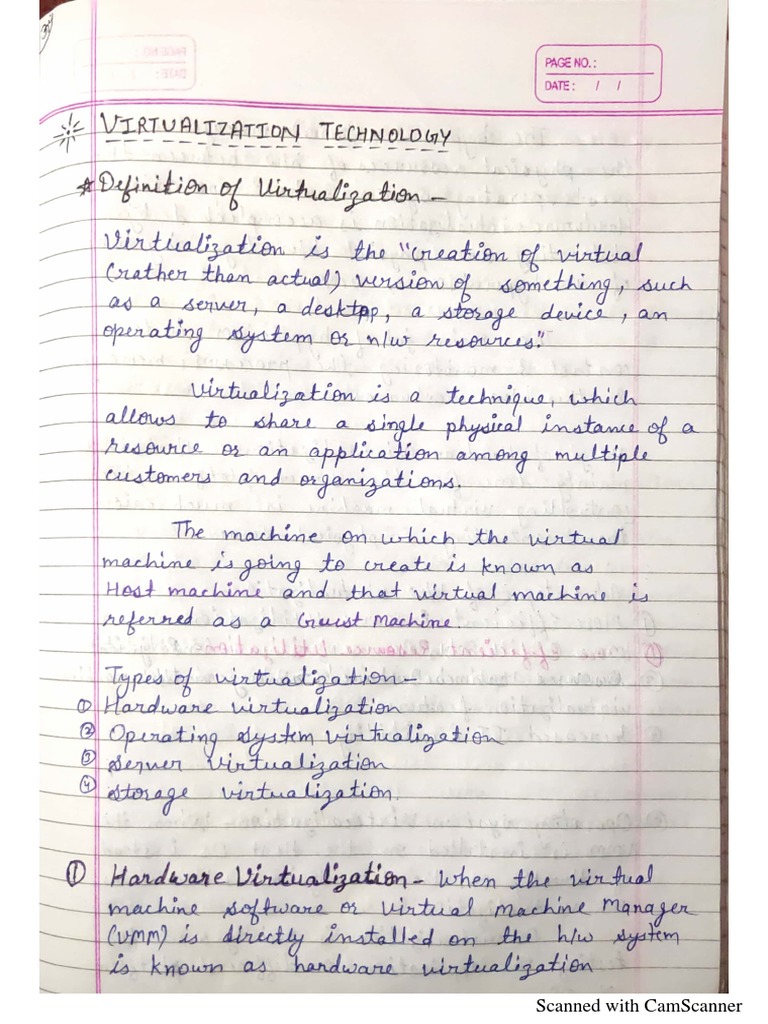 PAGE NO.:
DATE: / /
VIRTUALIZATION TECHNOLOGY
* Definition of Virtualization -
Virtualization is the "creation of virtual
(rather than actual) version of something, such
as a server, a desktop, a storage device, an
operating system or n/w resources."
Virtualization is a technique, which
allows to share a single physical instance of a
resource or an application among multiple
customers and organizations.
The machine on which the virtual
machine is going to create is known as
Host machine and that virtual machine is
referred as a Guest Machine.
Types of virtualization-
① Hardware virtualization
② Operating system virtualization
③ Server virtualization
④ Storage virtualization.
① Hardware Virtualization - When the virtual
machine software or virtual machine Manager
(VMM) is directly installed on the h/w system
is known as hardware virtualization
Scanned with CamScanner